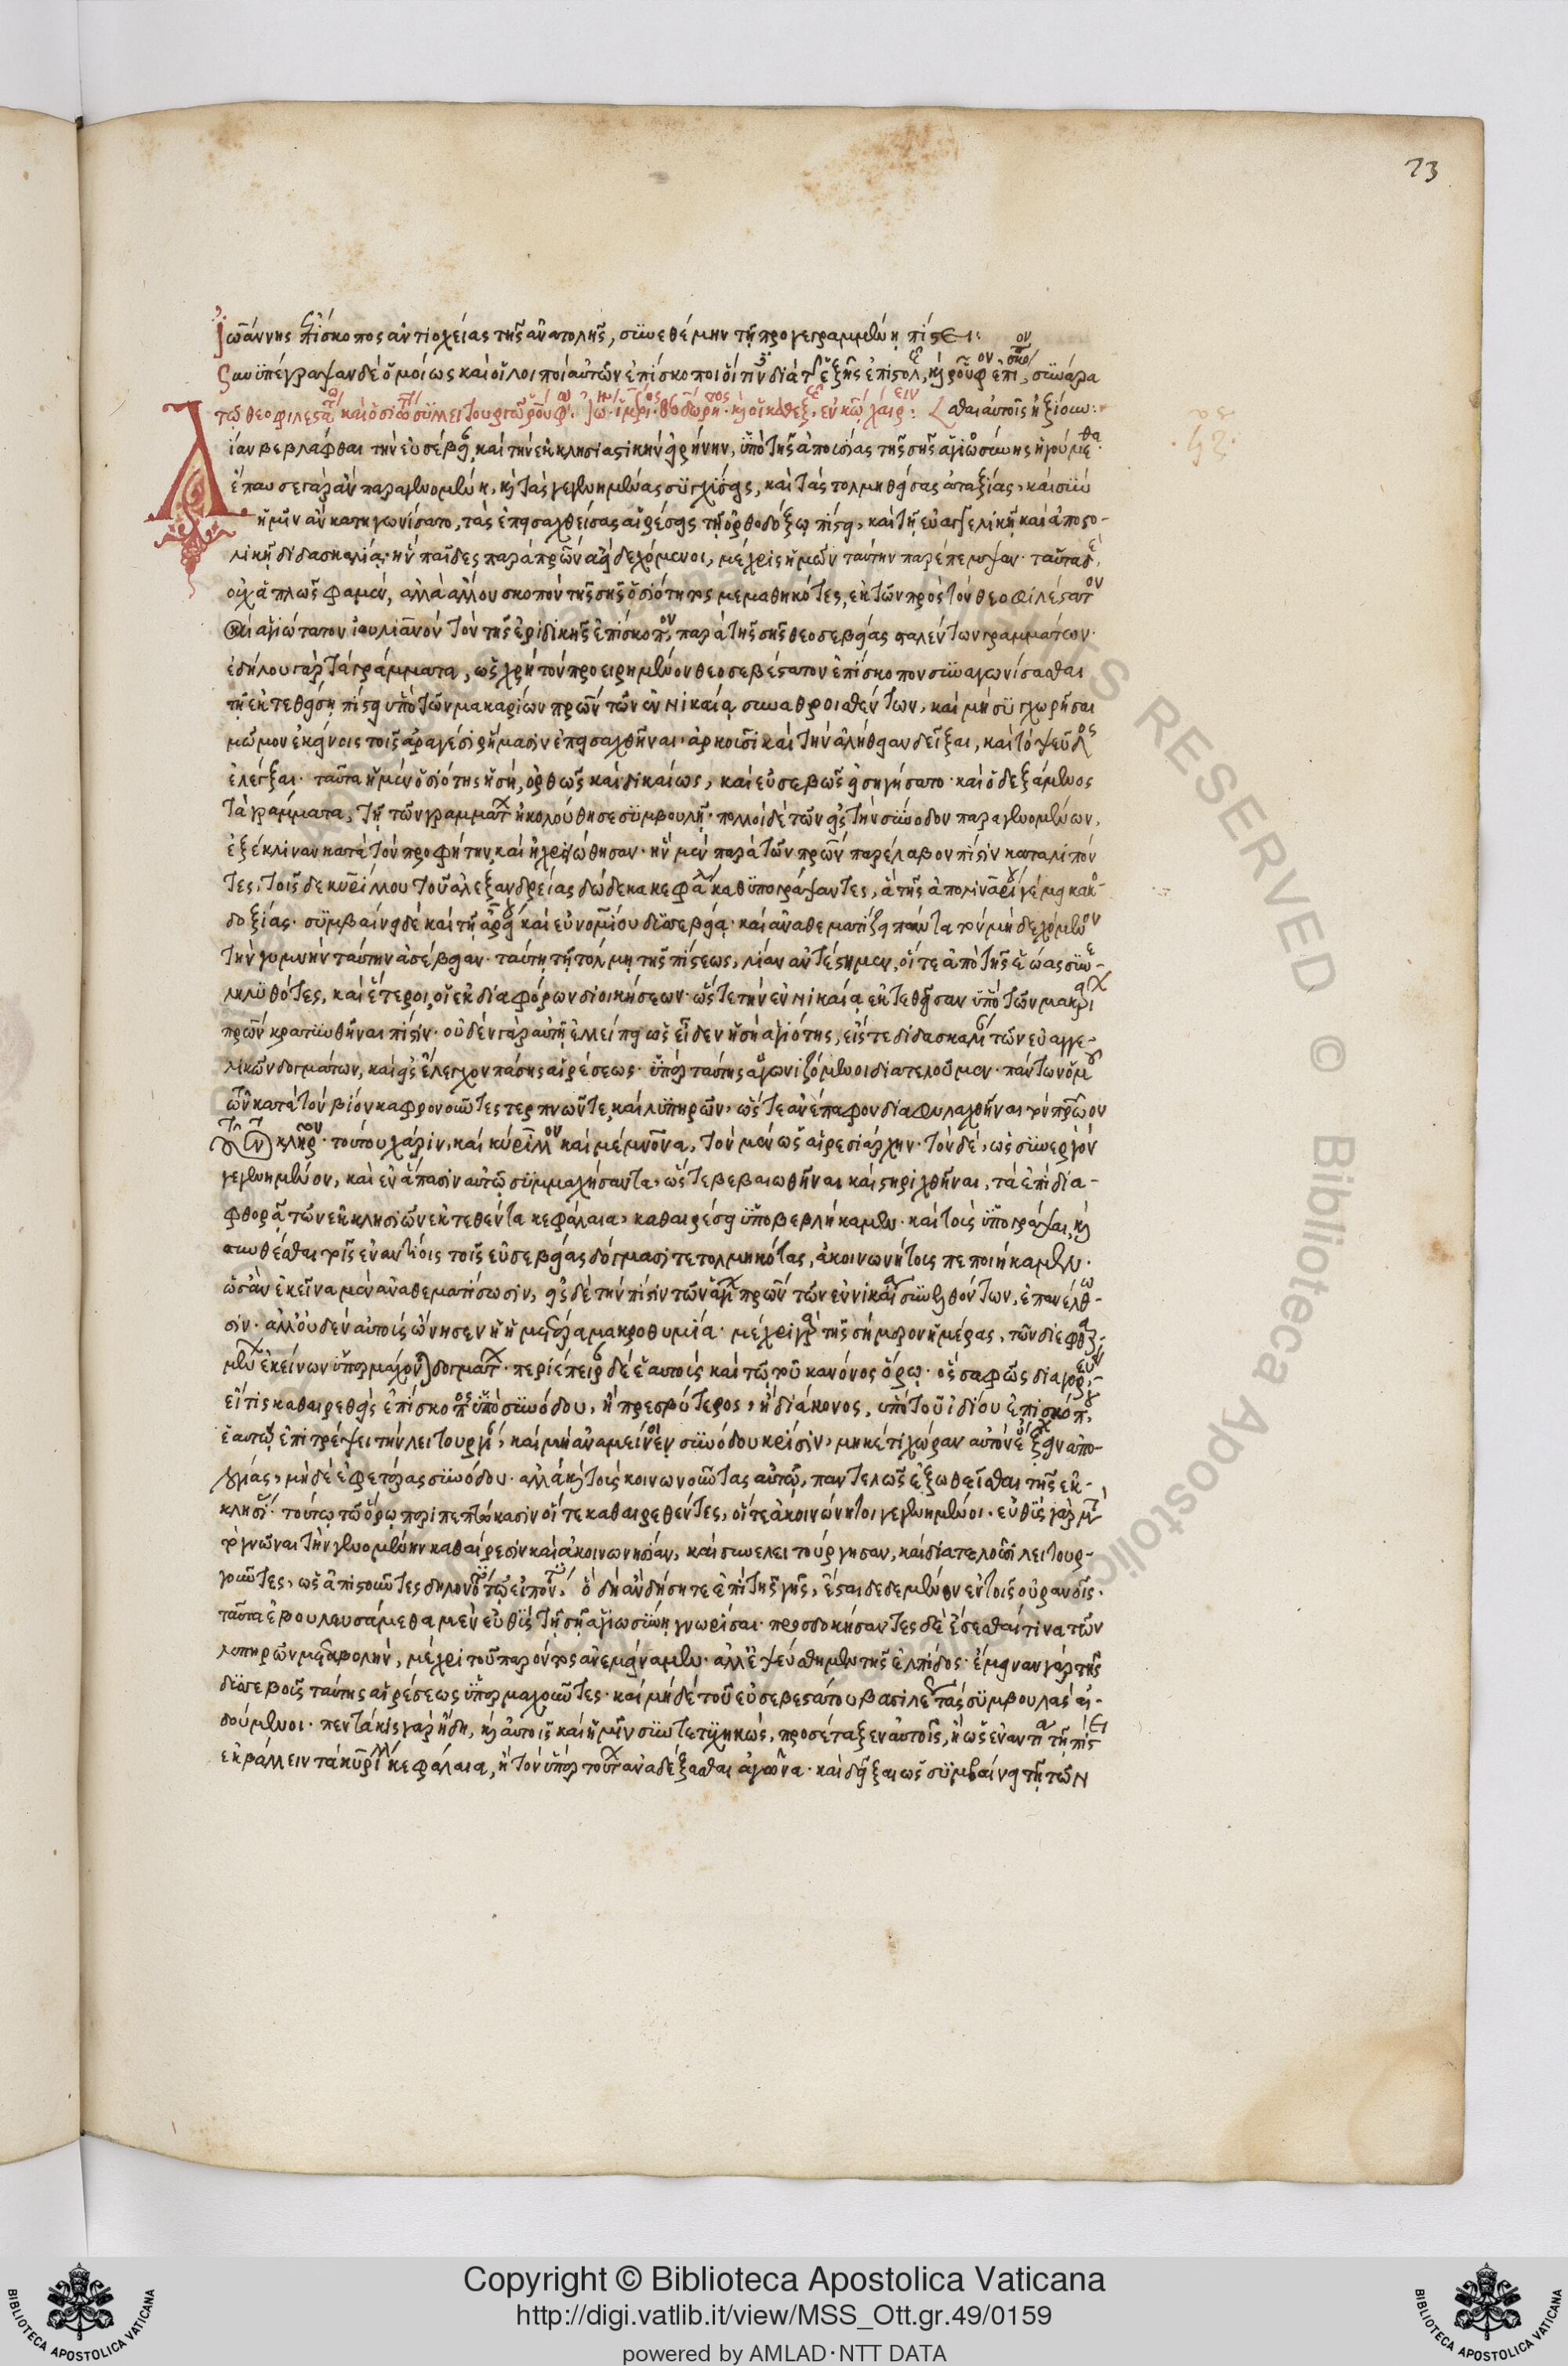 73
Ἰωάννης ἐπίσκοπος ἀντιοχείας τῆς ἀνατολῆς, συνεθέμην τῇ προγεγραμμένῃ πίστει:
ὑπέγραψαν δὲ ὁμοίως καὶ οἱ λοιποὶ αὐτῶν ἐπίσκοποι
τῷ θεοφιλεστά καὶ ὁσιω συλλειτουργῷ ῥούφ. Ἰω. θεοδώρη. κὶ οἱ καθεξ. ἐν κω χαίρειν: σθαι αὐτοῖς ἠξίουν:
ίαν βεβλάφθαι τὴν εὐσέβει καὶ τὴν ἐκκλησιαστικὴν εἰρήνην, ὑπὸ τῆς ἀπουσίας τῆς σῆς ἁγιωσύνης ἡγούμεθα.
ἔπαυσε γὰρ ἂν παραγενομένη, κὶ τὰς γεγενημένας συγχύσεις, καὶ τὰς τολμηθείσας ἀταξίας, καὶ σὺν
ἡμῖν ἂν κατηγωνίσατο, τὰς ἐπεισαχθείσας αἱρέσεις τῇ ὀρθοδόξῳ πίστει, καὶ τῇ εὐαγγελικῇ καὶ ἀποστο-
λικῇ διδασκαλίᾳ. ἣν παῖδες παρὰ πρων ἀεὶ δεχόμενοι, μέχρις ἡμῶν ταύτην παρέπεμψαν. ταῦτα δε
οὐχ ἁπλῶς φαμέν, ἀλλὰ τὸν σκοπὸν τῆς σῆς ὁσιότητος μεμαθηκότες, ἐκ τῶν πρὸς τὸν θεοφιλέστατον
καὶ ἁγιώτατον ἰουλιανὸν τὸν τῆς ἐπίσκοπον, παρὰ τῆς σῆς θεοσεβείας σταλέντων γραμμάτων.
ἐδήλου γὰρ τὰ γράμματα, ὡς χρὴ τὸν προειρημένον θεοσεβέστατον ἐπίσκοπον συναγωνίσασθαι
τῇ ἐκτεθείσῃ πίστει ὑπὸ τῶν μακαρίων πρων τῶν ἐν Νικαίᾳ συναθροισθέντων, καὶ μὴ συγχωρῆσαι
μῶμον ἐκείνοις τοῖς ἀρραγέσι ῥήμασιν ἐπεισαχθῆναι. ἀρκοῦσι καὶ τὴν ἀλήθειαν δεῖξαι, καὶ τὸ ψεῦδος
ἐλέγξαι. ταῦτα ἡ μὲν ὁσιότης ἡ σή, ὀρθῶς καὶ δικαίως, καὶ εὐσεβῶς εἰσηγήσατο. καὶ ὁ δεξάμενος
τὰ γράμματα, τῇ τῶν γραμματ ἠκολούθησε συμβουλῇ. πολλοὶ δὲ τῶν εἰς τὴν σύνοδον παραγενομένων,
ἐξέκλιναν κατὰ τὸν προφήτην, καὶ ἠχρειώθησαν. ἣν μὲν παρὰ τῶν πρων παρέλαβον πίστιν καταλιπόν
τες. τοῖς δὲ κυρίλλου τοῦ ἀλεξανδρείας δώδεκα κεφαλ καθυπογράψαντες, ἃ τῆς ἀπολιναρίου γέμει κακο-
δοξίας. συμβαίνει δὲ καὶ τῇ ἀρείου καὶ εὐνομίου δυσσεβείᾳ. καὶ ἀναθεματίζει πάντα τὸν μὴ δεχόμενον
τὴν γυμνὴν ταύτην ἀσέβειαν. ταύτῃ τῇ τόλμῃ τῆς πίστεως, λίαν ἀντέστημεν, οἵ τε ἀπὸ τῆς ἑώας συνε-
ληλυθότες, καὶ ἕτεροι, οἱ ἐκ διαφόρων διοικήσεων. ὥστε τὴν ἐν Νικαίᾳ ἐκτεθεῖσαν ὑπὸ τῶν μακαρι
πρων κρατυνθῆναι πίστιν. οὐδὲν γὰρ αὐτῇ ἐλλείπει ὡς εἶδεν ἡ σὴ ἁγιότης, εἴς τε διδασκαλι τῶν εὐαγγε-
λικῶν δογμάτων, καὶ εἰς ἔλεγχον πάσης αἱρέσεως. ὑπὲρ ταύτης ἀγωνιζόμενοι διατελοῦμεν. πάντων ὁμοῦ
τῶν κατὰ τὸν βίον καφρονοῦντες τερπνῶν τε καὶ λυπηρῶν, ὥστε ἀνέπαφον διαφυλαχθῆναι τὸν πρῶον
κληρον. τούτου χάριν, καὶ κύριλλον καὶ μέμνονα, τὸν μὲν ὡς αἱρεσιάρχην. τὸν δὲ, ὡς συνεργὸν
γεγενημένον, καὶ ἐν ἅπασιν αὐτῷ συμμαχήσαντα, ὥστε βεβαιωθῆναι καὶ στηριχθῆναι, τὰ ἐπὶ δια-
φθορᾷ τῶν ἐκκλησιῶν ἐκτεθέντα κεφάλαια, καθαιρέσει ὑποβεβλήκαμεν. καὶ τοὺς ὑπογράψαι, κὶ
συνθέσθαι τοῖς ἐναντίοις τοῖς εὐσεβείας δόγμασι τετολμηκότας, ἀκοινωνήτους πεποιήκαμεν.
ὡς ἂν ἐκεῖνα μὲν ἀναθεματίσωσιν, εἰς δὲ τὴν πίστιν τῶν ἁγι πρων τῶν ἐν νικαία συνελθόντων, ἐπανέλθω-
σιν. ἀλλ' οὐδὲν αὐτοὺς ὤνησεν ἡ ἡμετέρα μακροθυμία. μέχρι γὰρ τῆς σήμερον ἡμέρας, τῶν διεφθαρ-
μεν ἐκείνων ὑπερμαχοῦσι δογματ. περιέπειραν δὲ ἑαυτοὺς καὶ τῷ τοῦ κανόνος ὅρῳ. ὃς σαφῶς διαγορεύει.
εἴ τις καθαιρεθεὶς ἐπίσκοπος ὑπὸ συνόδου, ἢ πρεσβύτερος, ἢ διάκονος, ὑπὸ τοῦ ἰδίου ἐπισκόπου,
ἑαυτῷ ἐπιτρέψει τὴν λειτουργι, καὶ μὴ ἀναμείνοι συνόδου κρίσιν, μηκέτι χώραν αὐτὸν ἔχειν ἀπο-
λογίας, μὴ δὲ ἐφ' ἑτέρας συνόδου. ἀλλὰ κὶ τοὺς κοινωνοῦντας αὐτῷ, παντελῶς ἐξωθεῖσθαι τῆς ἐκ-
κλησί. τούτῳ τῷ ὅρῳ περιπεπτώκασιν οἵ τε καθαιρεθέντες, οἵ τε ἀκοινώνητοι γεγενημένοι. εὐθὺς γὰρ μετ
τὸ γνῶναι τὴν γενομένην καθαίρεσιν καὶ ἀκοινωνησίαν, καὶ συνελειτούργησαν, καὶ διατελοῦσι λειτουρ-
γοῦντες, ὡς ἀπιστοῦντες δηλονότι τῷ εἰπόντι. ὃ δὴ ἂν δήσητε ἐπὶ τῆς γῆς, ἔσται δεδεμένον ἐν τοῖς οὐρανοῖς.
ταῦτα ἐβουλευσάμεθα μὲν εὐθὺς τῇ σῇ ἁγιωσύνῃ γνωρίσαι. προσδοκήσαντες δὲ ἔσεσθαί τινα τῶν
λυπηρῶν μεταβολήν, μέχρι τοῦ παρόντος ἀνεμείναμεν. ἀλλ' ἐψεύσθημεν τῆς ἐλπίδος. ἔμειναν γὰρ τῆς
δυσσεβοῦς ταύτης αἱρέσεως ὑπερμαχοῦντες. καὶ μὴ δὲ τοῦ εὐσεβεστάτου βασιλέως τὰς συμβουλὰς αἰ-
δούμενοι. πεντάκις γὰρ ἤδη, κὶ αὐτοῖς καὶ ἡμῖν συντετυχηκώς, προσέταξεν αὐτοῖς, ἢ ὡς ἐναντία τῇ πίστει
ἐκβάλλειν τὰ κυρίλλ κεφάλαια, ἢ τὸν ὑπὲρ τουτ ἀναδέξασθαι ἀγῶνα. καὶ δεῖξαι ὡς συμβαίνει τῇ τῶν
RIGHTS RESERVED © Biblioteca Apostolica
Copyright © Biblioteca Apostolica Vaticana
http://digi.vatlib.it/view/MSS_Ott.gr.49/0159
powered by AMLAD·NTT DATA
BIBLIOTECA APOSTOLICA VATICANA
BIBLIOTECA APOSTOLICA VATICANA